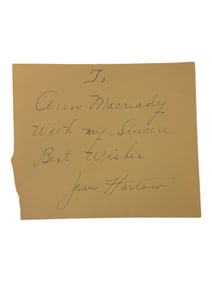 To
Ann Macready
With my Sincere
Best Wishes
Jean Harlow